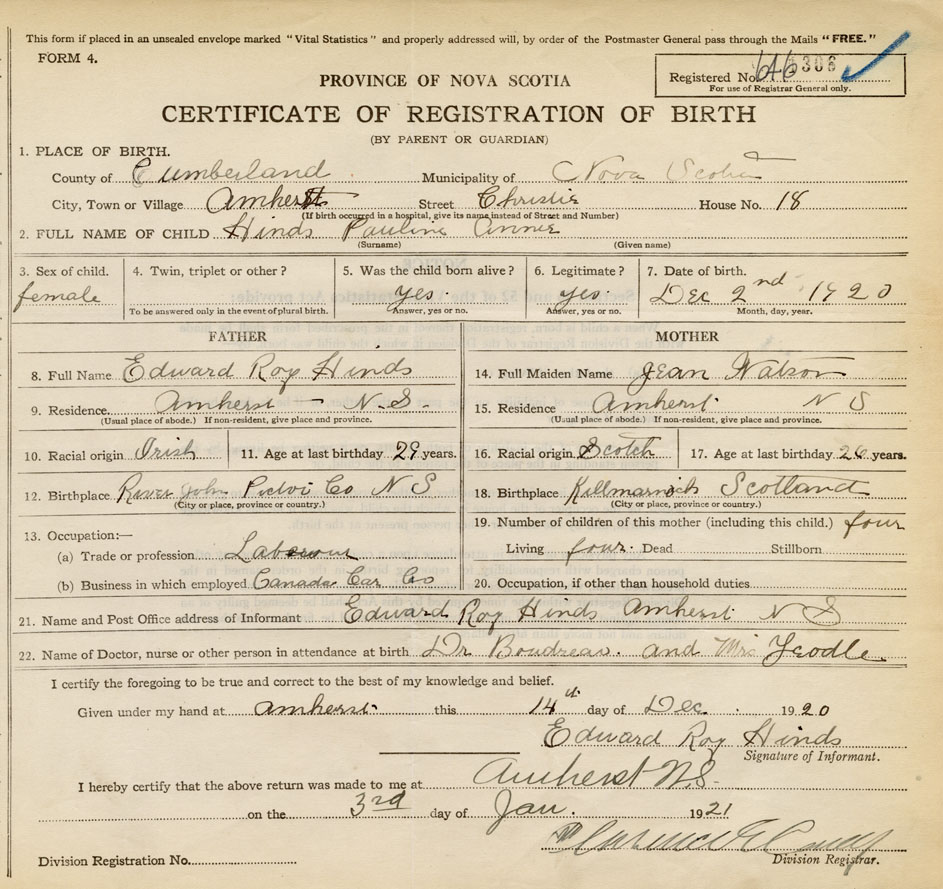 This form if placed in an unsealed envelope marked "Vital Statistics" and properly addressed will, by order of the Postmaster General pass through the Mails "FREE."
FORM 4.
PROVINCE OF NOVA SCOTIA
Registered No. 646306
For use of Registrar General only.
CERTIFICATE OF REGISTRATION OF BIRTH
(BY PARENT OR GUARDIAN)
1. PLACE OF BIRTH.
County of Cumberland Municipality of Nova Scotia
City, Town or Village Amherst Street Christie House No. 18
(If birth occurred in a hospital, give its name instead of Street and Number)
2. FULL NAME OF CHILD Hinds Pauline Annie
(Surname) (Given name)
3. Sex of child. 4. Twin, triplet or other? 5. Was the child born alive? 6. Legitimate? 7. Date of birth.
female yes. yes. Dec 2nd 1920
To be answered only in the event of plural birth. Answer, yes or no. Answer, yes or no. Month, day, year.
FATHER MOTHER
8. Full Name Edward Roy Hinds 14. Full Maiden Name Jean Watson
9. Residence Amherst - N.S. 15. Residence Amherst N S
(Usual place of abode.) If non-resident, give place and province. (Usual place of abode.) If non-resident, give place and province.
10. Racial origin Irish 11. Age at last birthday 29 years. 16. Racial origin Scotch 17. Age at last birthday 26 years.
12. Birthplace River John Pictou Co N S 18. Birthplace Killmarnock Scotland
(City or place, province or country.) (City or place, province or country.)
13. Occupation:— 19. Number of children of this mother (including this child.) four
(a) Trade or profession Labourer Living four. Dead Stillborn
(b) Business in which employed Canada Car Co 20. Occupation, if other than household duties
21. Name and Post Office address of Informant Edward Roy Hinds Amherst N S
22. Name of Doctor, nurse or other person in attendance at birth Dr Boudreau. and Mrs
I certify the foregoing to be true and correct to the best of my knowledge and belief.
Given under my hand at Amherst this 14th day of Dec. 1920
Edward Roy Hinds
Signature of Informant.
I hereby certify that the above return was made to me at Amherst N.S.
on the 3rd day of Jan. 1921
Division Registration No. Division Registrar.